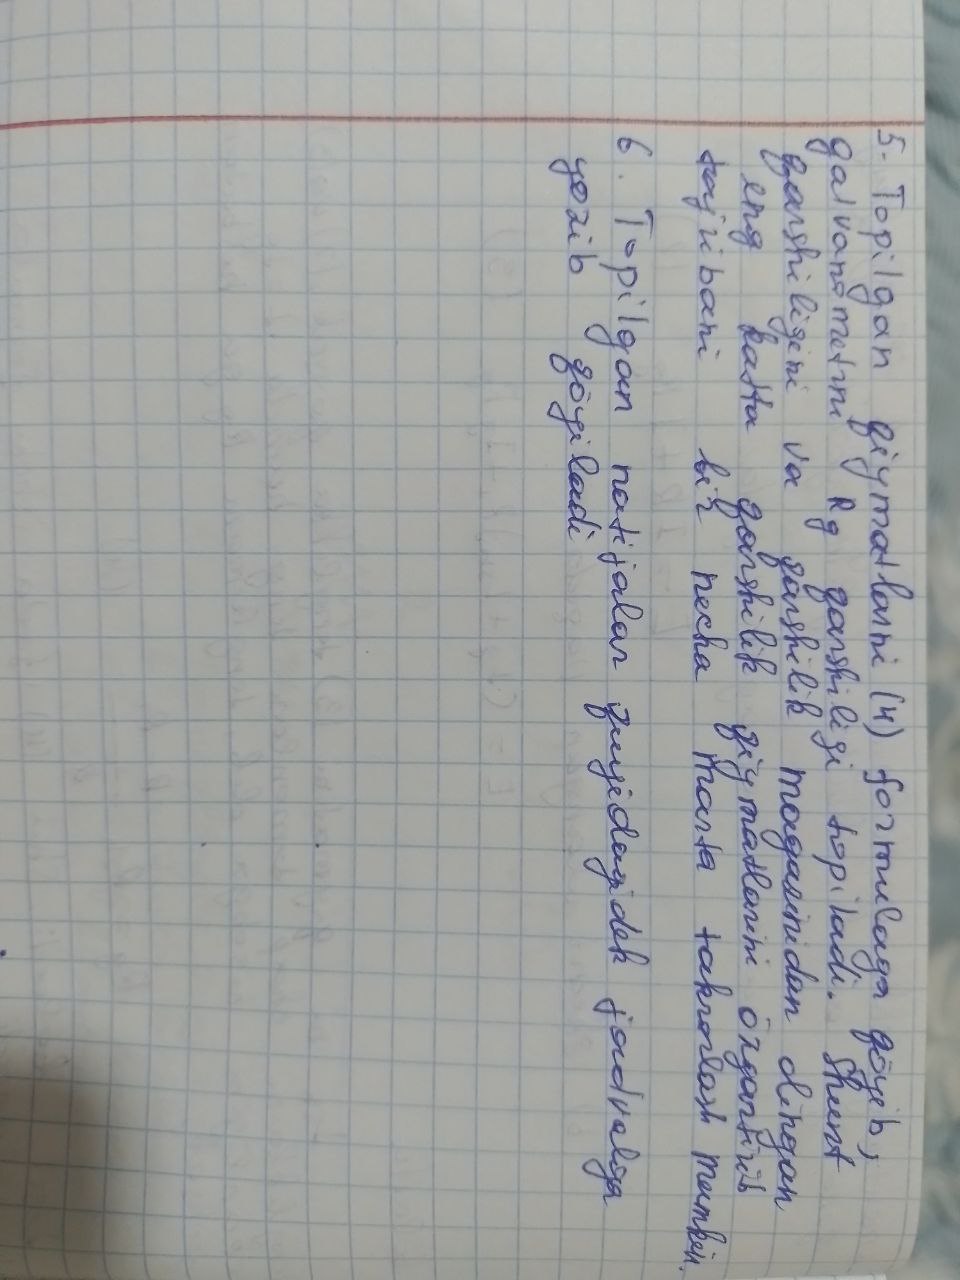 5. Topilgan qiymatlarni (4) formulaga qöyib,
galvanometrni Rg qarshiligi topiladi. Shunt
qarshiligini va qarshilik magazinidan olingan
eng katta qarshilik qiymatlarini özgartirib
tajribani bir necha marta takrorlash mumkin.
6. Topilgan natijalar quyidagidek jadvalga
yozib qöyiladi